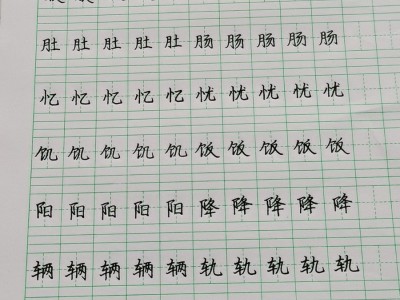 肚肚肚肚肚肠肠肠肠肠
忆忆忆忆忆忧忧忧忧忧
饥饥饥饥饥饭饭饭饭饭
阳阳阳阳阳降降降降降
辆辆辆辆辆轨轨轨轨轨